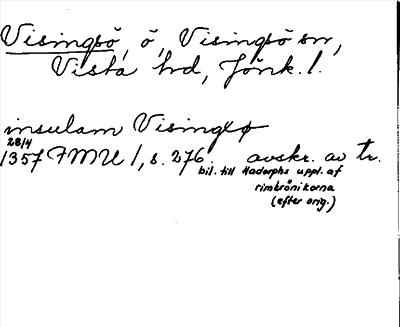 Visingsö, ö, Visingsö sn,
Vista hd, Jönk. l.
insulam Visingsø
28/4
1357 FMU 1, s. 276. avskr. av tr.
bil. till Hadorphs uppl. af
rimkrönikorna
(efter orig.)